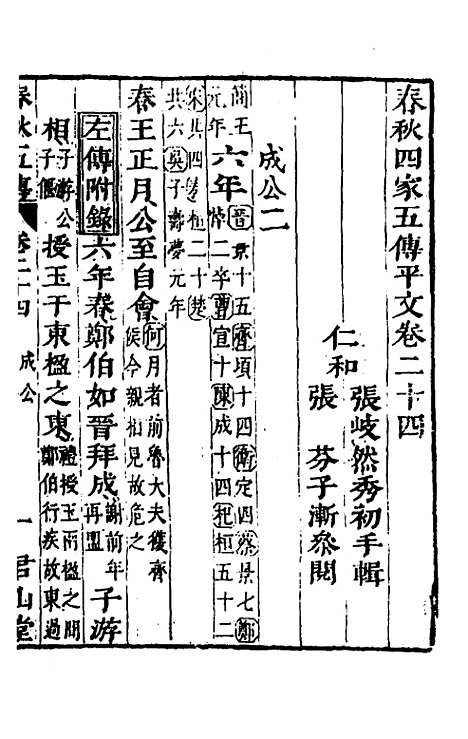 春秋四家五傳平文卷二十四
仁和
張岐然秀初手輯
張　芬子漸叅閱
成公二
簡王
元年
六年
晉景十五齊頃十四衛定四蔡景七鄭
悼二卒曹宣十陳成十四杞桓五十二
宋共四秦桓二十楚
共六吳子壽夢元年
春王正月公至自會
何月者前魯大夫獲齊
侯今親相見故危之
左傳附錄六年春鄭伯如晉拜成
謝前年
再盟
子游
相
子游公
子偃
授玉于東楹之東
禮授玉兩楹之間
鄭伯行疾故東過
春秋五傳
卷二十四
成公
一
君山堂